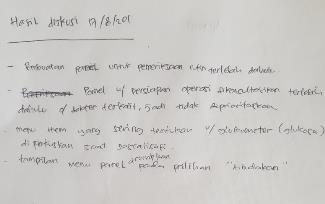 Hasil diskusi 17/8/201
- Pembuatan panel untuk pemeriksaan rutin terlebih dahulu
- Panel u/ persiapan operasi dikonsultasikan terlebih
dahulu d/ dokter terkait, jadi tidak diprioritaskan
- menu item yang sering u/ glukometer (glukosa)
di saat sosialisasi.
- tampilan menu panel pada pilihan "tindakan"